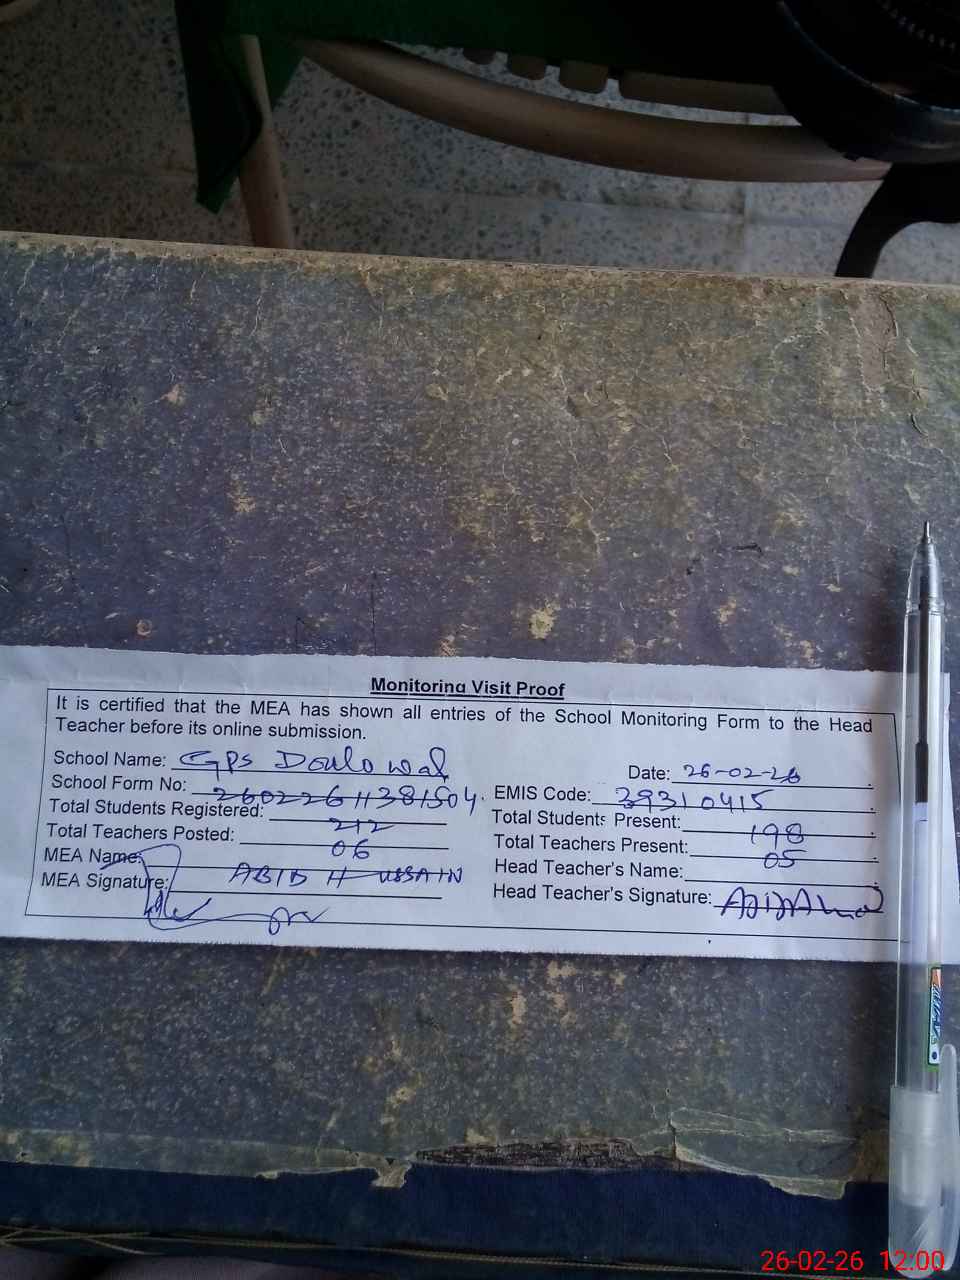 Monitoring Visit Proof
It is certified that the MEA has shown all entries of the School Monitoring Form to the Head
Teacher before its online submission.
School Name: GPS Doulowal
Date: 26-02-26
School Form No: 26022611381504
EMIS Code: 39310415
Total Students Registered: 212
Total Students Present: 198
Total Teachers Posted: 06
Total Teachers Present: 05
MEA Name: ABID HUSSAIN
Head Teacher's Name:
MEA Signature:
Head Teacher's Signature:
26-02-26 12:00